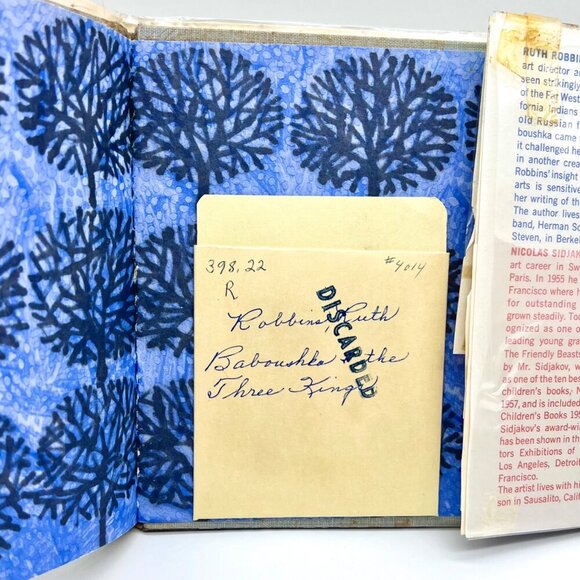 398.22
#4014
R
Robbins, Ruth
Baboushka & the
Three Kings
DISCARDED
RUTH ROBBIN
art director an
seen strikingly
of the Far West
fornia Indians
old Russian f
boushka came
it challenged he
in another crea
Robbins' insight
arts is sensitive
her writing of th
The author lives
band, Herman Sc
Steven, in Berkel
NICOLAS SIDJAK
art career in Sw
Paris. In 1955 he
Francisco where h
for outstanding
grown steadily. Too
ognized as one o
leading young gra
The Friendly Beast
by Mr. Sidjakov, w
as one of the ten bes
children's books, N
1957, and is included
Children's Books 195
Sidjakov's award-wi
has been shown in th
tors Exhibitions of
Los Angeles, Detroit
Francisco.
The artist lives with hi
son in Sausalito, Calif